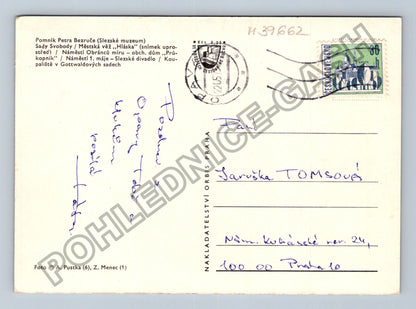 H39662
Pomník Petra Bezruče (Slezské muzeum)
Sady Svobody / Městská věž „Hláska" (snímek upro-
střed) / Náměstí Obránců míru – obch. dům „Prů-
kopník" / Náměstí 1. máje – Slezské divadlo / Kou-
paliště v Gottwaldových sadech
OPAVA
ČESKOSLOVENSKO
Pozdrav z
Opavy Tobě a
klukům
posílá
Paní
Jaruška TOMSOVÁ
Nám. Kubánské rev. 24,
100 00 Praha 10
NAKLADATELSTVÍ ORBIS PRAHA
Foto © A. Pustka (6), Z. Menec (1)
POHLEDNICE-GASH